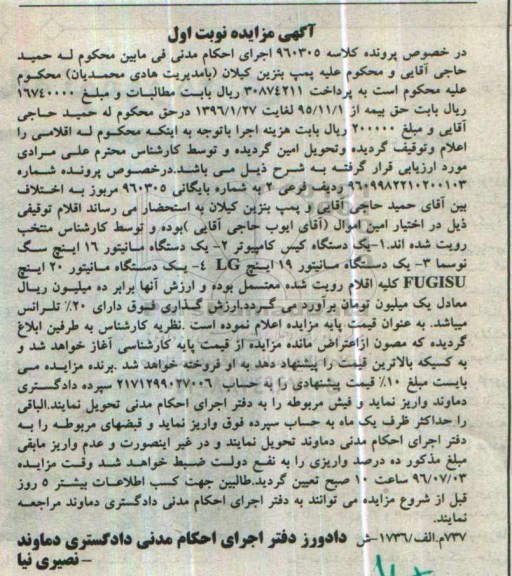 آگهی مزایده نوبت اول
در خصوص پرونده کلاسه ۹۶۰۳۰۵ اجرای احکام مدنی فی مابین محکوم لـه حمید
حاجی آقایی و محکوم علیه پمپ بنزین کیلان (بامدیریت هادی محمدیان) محکـوم
علیه محکوم است به پرداخت ۳۰۸۷۴۲۱۱ ریال بابت مطالبات و مبلـغ ۱۶۷۴۰۰۰۰
ریال بابت حق بیمه از ۹۵/۱۱/۱ لغایت ۱۳۹۶/۱/۲۷ درحق محکوم له حمیـد حـاجی
آقایی و مبلغ ۲۰۰۰۰۰ ریال بابت هزینه اجرا باتوجه به اینکـه محکـوم لـه اقلامـی را
اعلام وتوقیف گردیده وتحویل امین گردیده و توسط کارشناس محترم علـی مـرادی
مورد ارزیابی قرار گرفتـه بـه شـرح ذیـل مـی باشـد.درخصـوص پرونـده شـماره
۹۶۰۹۹۸۲۲۱۰۲۰۰۱۰۳ ردیف فرعی ۲ به شماره بایگانی ۹۶۰۳۰۵ مربوز بـه اخـتلاف
بین آقای حمید حاجی آقایی و پمپ بنزین کیلان به استحضار می رساند اقلام توقیفی
ذیل در اختیار امین اموال (آقای ایوب حاجی آقایی )بوده و توسط کارشناس منتخب
رویت شده اند.۱-یک دستگاه کیس کامپیوتر ۲- یک دستگاه مانیتور ۱۶ اینچ سـگ
نوسما ۳- یک دستگاه مـانیتور ۱۹ اینـچ LG ٤- یـک دسـتگاه مـانیتور ۲۰ اینچ
FUGISU کلیه اقلام رویت شده معتسمل بوده و ارزش آنها برابر ده میلیـون ریـال
معادل یک میلیون تومان برآورد می گـردد.ارزش گـذاری فـوق دارای ۲۰٪ تلـرانس
میباشد. به عنوان قیمت پایه مزایده اعلام نموده است .نظریه کارشناس به طرفین ابلاغ
گردیده که مصون ازاعتراض مانده مزایده از قیمت پایه کارشناسی آغاز خواهد شد و
به کسیکه بالاترین قیمت را پیشنهاد دهد به او فروخته خواهد شد .برنده مزایـده مـی
بایست مبلغ ۱۰٪ قیمت پیشنهادی را به حساب ۲۱۷۱۲۹۹۰۲۷۰۰۶ سپرده دادگستری
دماوند واریز نماید و فیش مربوطه را به دفتر اجرای احکام مدنی تحویل نمایند.الباقی
را حداکثر ظرف یک ماه به حساب سپرده فوق واریز نماید و قبضهای مربوطـه را بـه
دفتر اجرای احکام مدنی دماوند تحویل نمایند و در غیر اینصورت و عدم واریز مابقی
مبلغ مذکور ده درصد واریزی را به نفـع دولـت ضـبط خواهـد شـد وقـت مزایـده
۹۶/۰۷/۰۳ ساعت ۱۰ صبح تعیین گردید.طالبین جهت کسب اطلاعـات بیشتر ۵ روز
قبل از شروع مزایده می توانند به دفتر اجرای احکام مدنی دادگستری دماوند مراجعـه
نمایند.
۷۳۷م.الف/۱۷۳۶-ش دادورز دفتر اجرای احکام مدنی دادگستری دماوند
– نصیری نیا